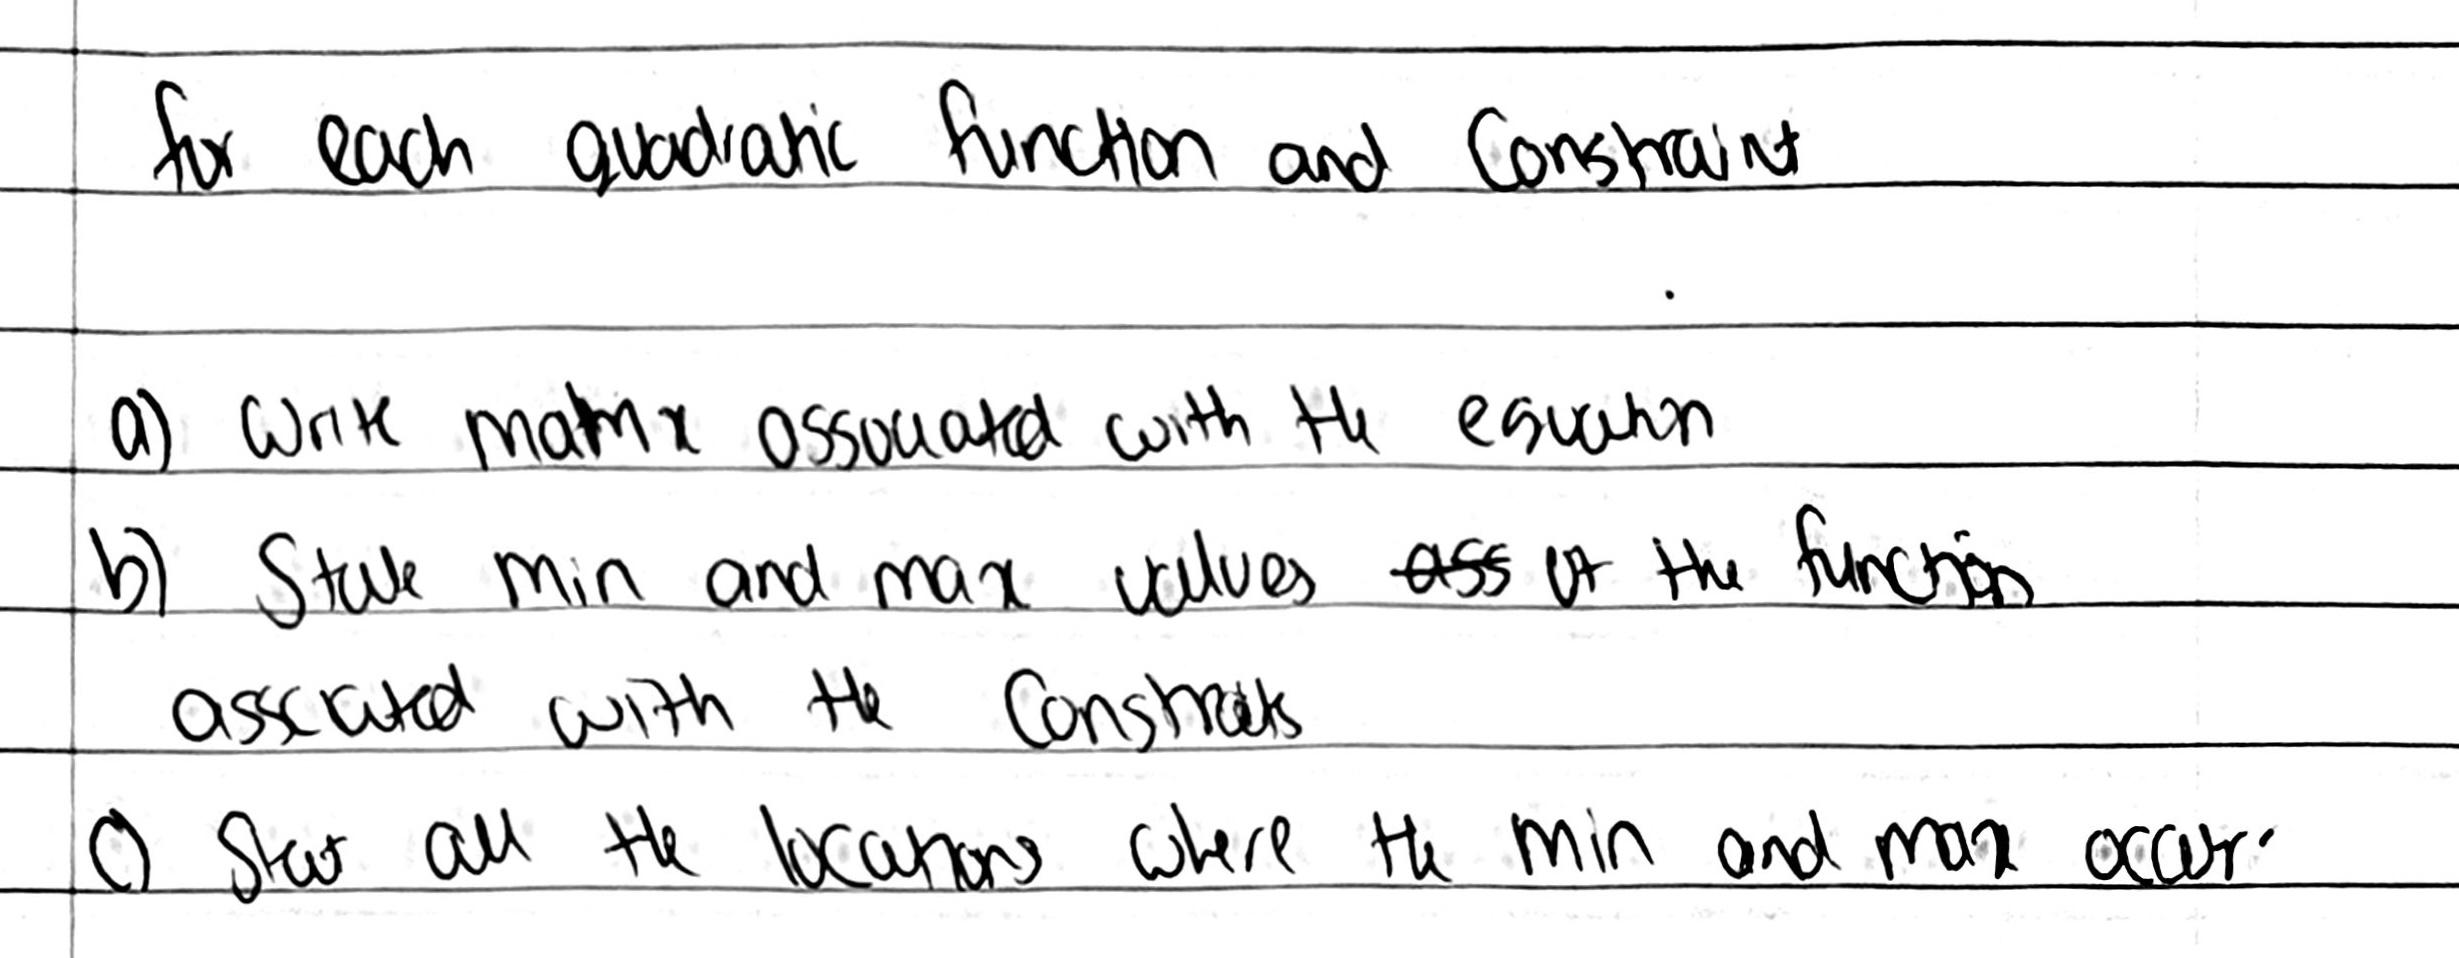 for each quadratic function and Constraint
a) Write matrix associated with the equation
b) State min and max values ass of the function
associated with the Constraints
c) State all the locations where the min and max occur.